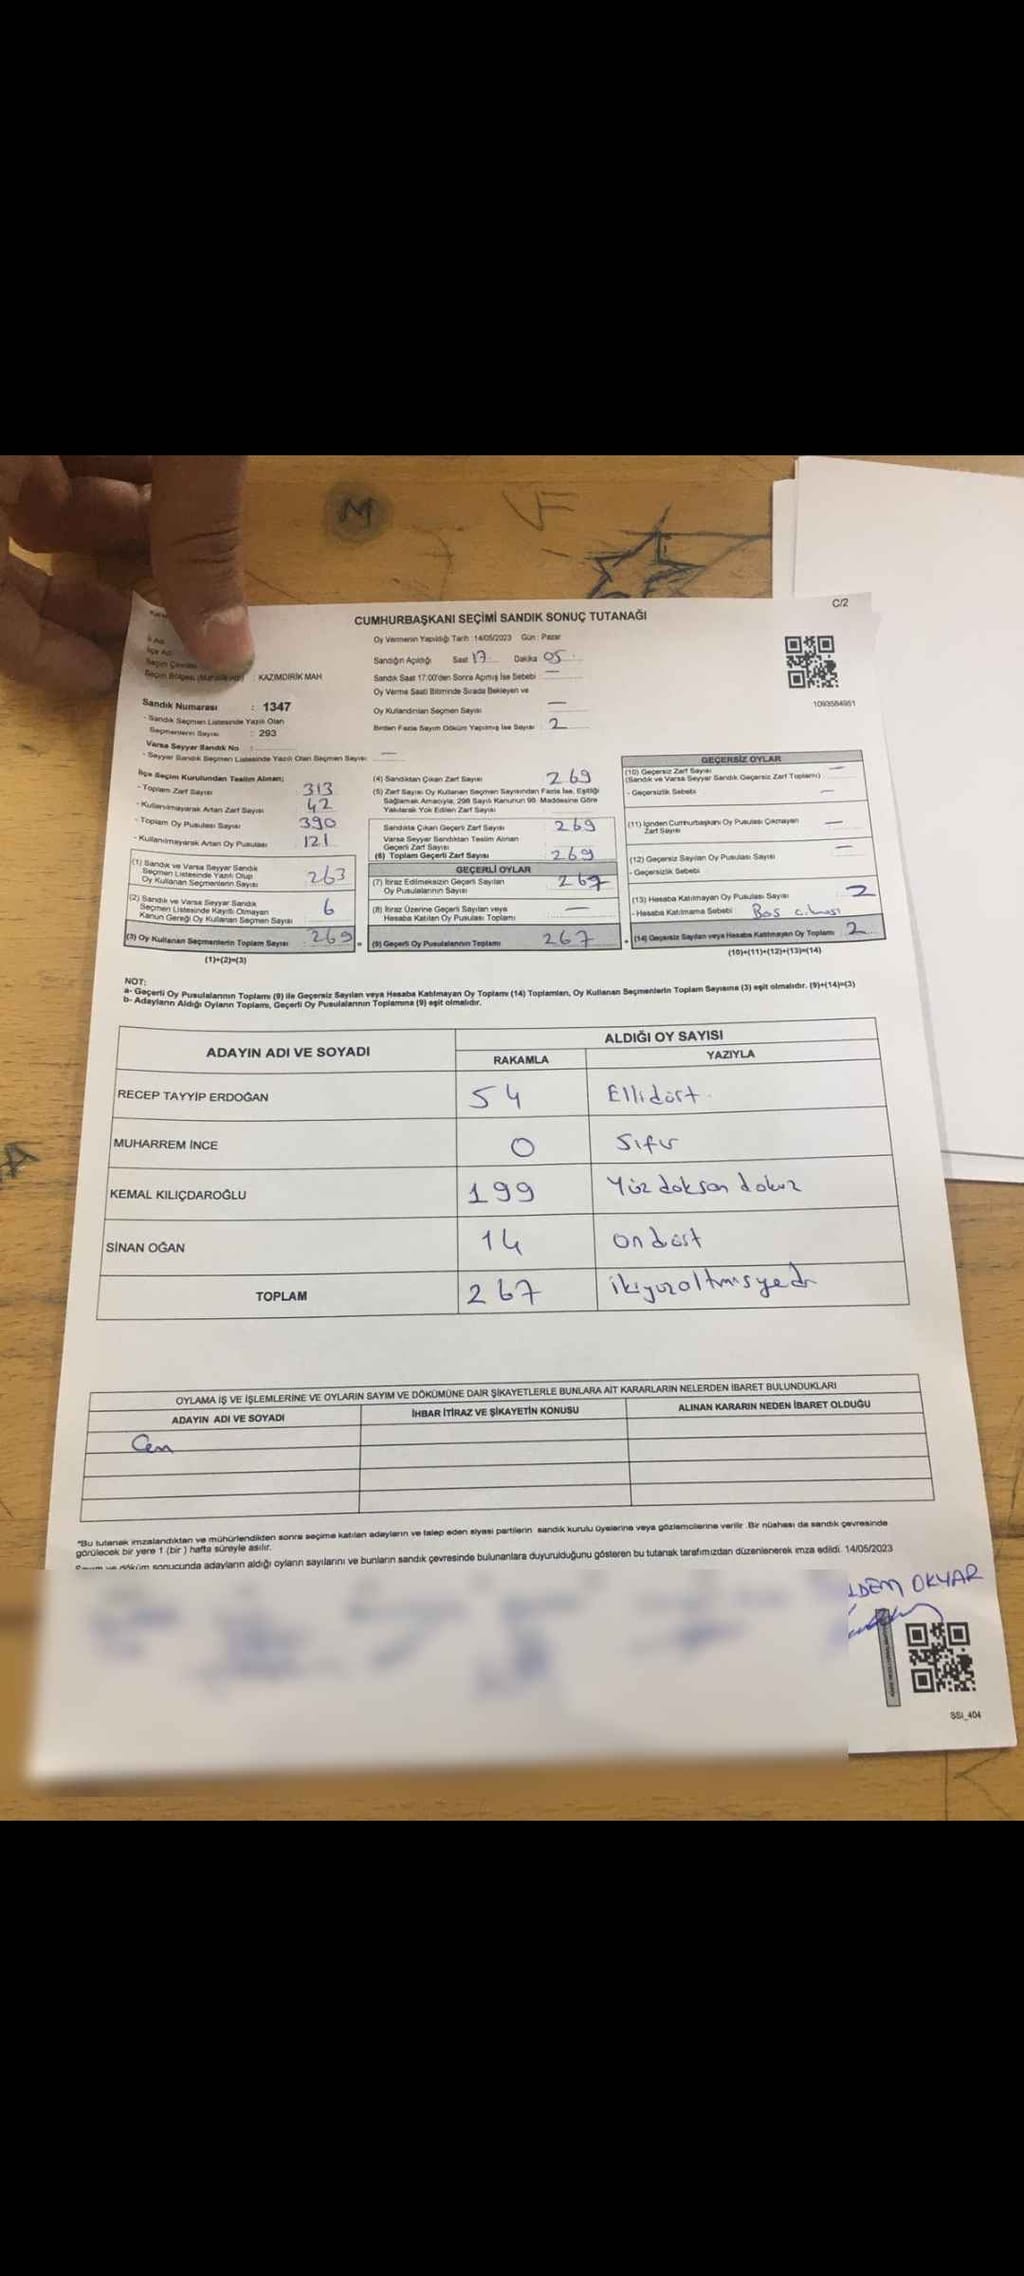 M
F
C/2
CUMHURBAŞKANI SEÇİMİ SANDIK SONUÇ TUTANAĞI
Oy Vermenin Yapıldığı Tarih :14/05/2023 Gün : Pazar
Sandığın Açıldığı Saat 17 Dakika 05
Sandık Saat 17:00'den Sonra Açımış İse Sebebi —
Oy Verme Saati Bitiminde Sırada Bekleyen ve
Oy Kullandırılan Seçmen Sayısı —
Birden Fazla Sayım Döküm Yapılmış İse Sayısı 2
: KAZIMDİRİK MAH
Sandık Numarası : 1347
- Sandık Seçmen Listesinde Yazılı Olan
Seçmenlerin Sayısı : 293
Varsa Seyyar Sandık No :
- Seyyar Sandık Seçmen Listesinde Yazılı Olan Seçmen Sayısı: —
1093584951
İlçe Seçim Kurulundan Teslim Alınan;
- Toplam Zarf Sayısı 313
- Kullanılmayarak Artan Zarf Sayısı 42
- Toplam Oy Pusulası Sayısı 390
- Kullanılmayarak Artan Oy Pusulası 121
(1) Sandık ve Varsa Seyyar Sandık
Seçmen Listesinde Yazılı Olup
Oy Kullanan Seçmenlerin Sayısı 263
(2) Sandık ve Varsa Seyyar Sandık
Seçmen Listesinde Kayıtlı Olmayan
Kanun Gereği Oy Kullanan Seçmen Sayısı 6
(3) Oy Kullanan Seçmenlerin Toplam Sayısı 269
(1)+(2)=(3)
=
(4) Sandıktan Çıkan Zarf Sayısı 269
(5) Zarf Sayısı Oy Kullanan Seçmen Sayısından Fazla İse, Eşitliği
Sağlamak Amacıyla, 298 Sayılı Kanunun 98. Maddesine Göre
Yakılarak Yok Edilen Zarf Sayısı
Sandıkta Çıkan Geçerli Zarf Sayısı 269
Varsa Seyyar Sandıktan Teslim Alınan
Geçerli Zarf Sayısı
(6) Toplam Geçerli Zarf Sayısı 269
GEÇERLİ OYLAR
(7) İtiraz Edilmeksizin Geçerli Sayılan
Oy Pusulalarının Sayısı 267
(8) İtiraz Üzerine Geçerli Sayılan veya
Hesaba Katılan Oy Pusulası Toplamı —
(9) Geçerli Oy Pusulalarının Toplamı 267
+
GEÇERSİZ OYLAR
(10) Geçersiz Zarf Sayısı —
(Sandık ve Varsa Seyyar Sandık Geçersiz Zarf Toplamı)
- Geçersizlik Sebebi —
(11) İçinden Cumhurbaşkanı Oy Pusulası Çıkmayan
Zarf Sayısı —
(12) Geçersiz Sayılan Oy Pusulası Sayısı —
- Geçersizlik Sebebi
(13) Hesaba Katılmayan Oy Pusulası Sayısı 2
- Hesaba Katılmama Sebebi Bos cıkması
(14) Geçersiz Sayılan veya Hesaba Katılmayan Oy Toplamı 2
(10)+(11)+(12)+(13)=(14)
NOT:
a- Geçerli Oy Pusulalarının Toplamı (9) ile Geçersiz Sayılan veya Hesaba Katılmayan Oy Toplamı (14) Toplamları, Oy Kullanan Seçmenlerin Toplam Sayısına (3) eşit olmalıdır. (9)+(14)=(3)
b- Adayların Aldığı Oyların Toplamı, Geçerli Oy Pusulalarının Toplamına (9) eşit olmalıdır.
ADAYIN ADI VE SOYADI
ALDIĞI OY SAYISI
RAKAMLA YAZIYLA
RECEP TAYYİP ERDOĞAN 54 Ellidört
MUHARREM İNCE 0 Sıfır
KEMAL KILIÇDAROĞLU 199 Yüz doksan dokuz
SİNAN OĞAN 14 on dört
TOPLAM 267 ikiyüzaltmışyedi
OYLAMA İŞ VE İŞLEMLERİNE VE OYLARIN SAYIM VE DÖKÜMÜNE DAİR ŞİKAYETLERLE BUNLARA AİT KARARLARIN NELERDEN İBARET BULUNDUKLARI
ADAYIN ADI VE SOYADI İHBAR İTİRAZ VE ŞİKAYETİN KONUSU ALINAN KARARIN NEDEN İBARET OLDUĞU
Cem
"Bu tutanak imzalandıktan ve mühürlendikten sonra seçime katılan adayların ve talep eden siyasi partilerin sandık kurulu üyelerine veya gözlemcilerine verilir. Bir nüshası da sandık çevresinde
görülecek bir yere 1 (bir ) hafta süreyle asılır.
Sayım ve döküm sonucunda adayların aldığı oyların sayılarını ve bunların sandık çevresinde bulunanlara duyurulduğunu gösteren bu tutanak tarafımızdan düzenlenerek imza edildi. 14/05/2023
LDEM OKYAR
SSI_404